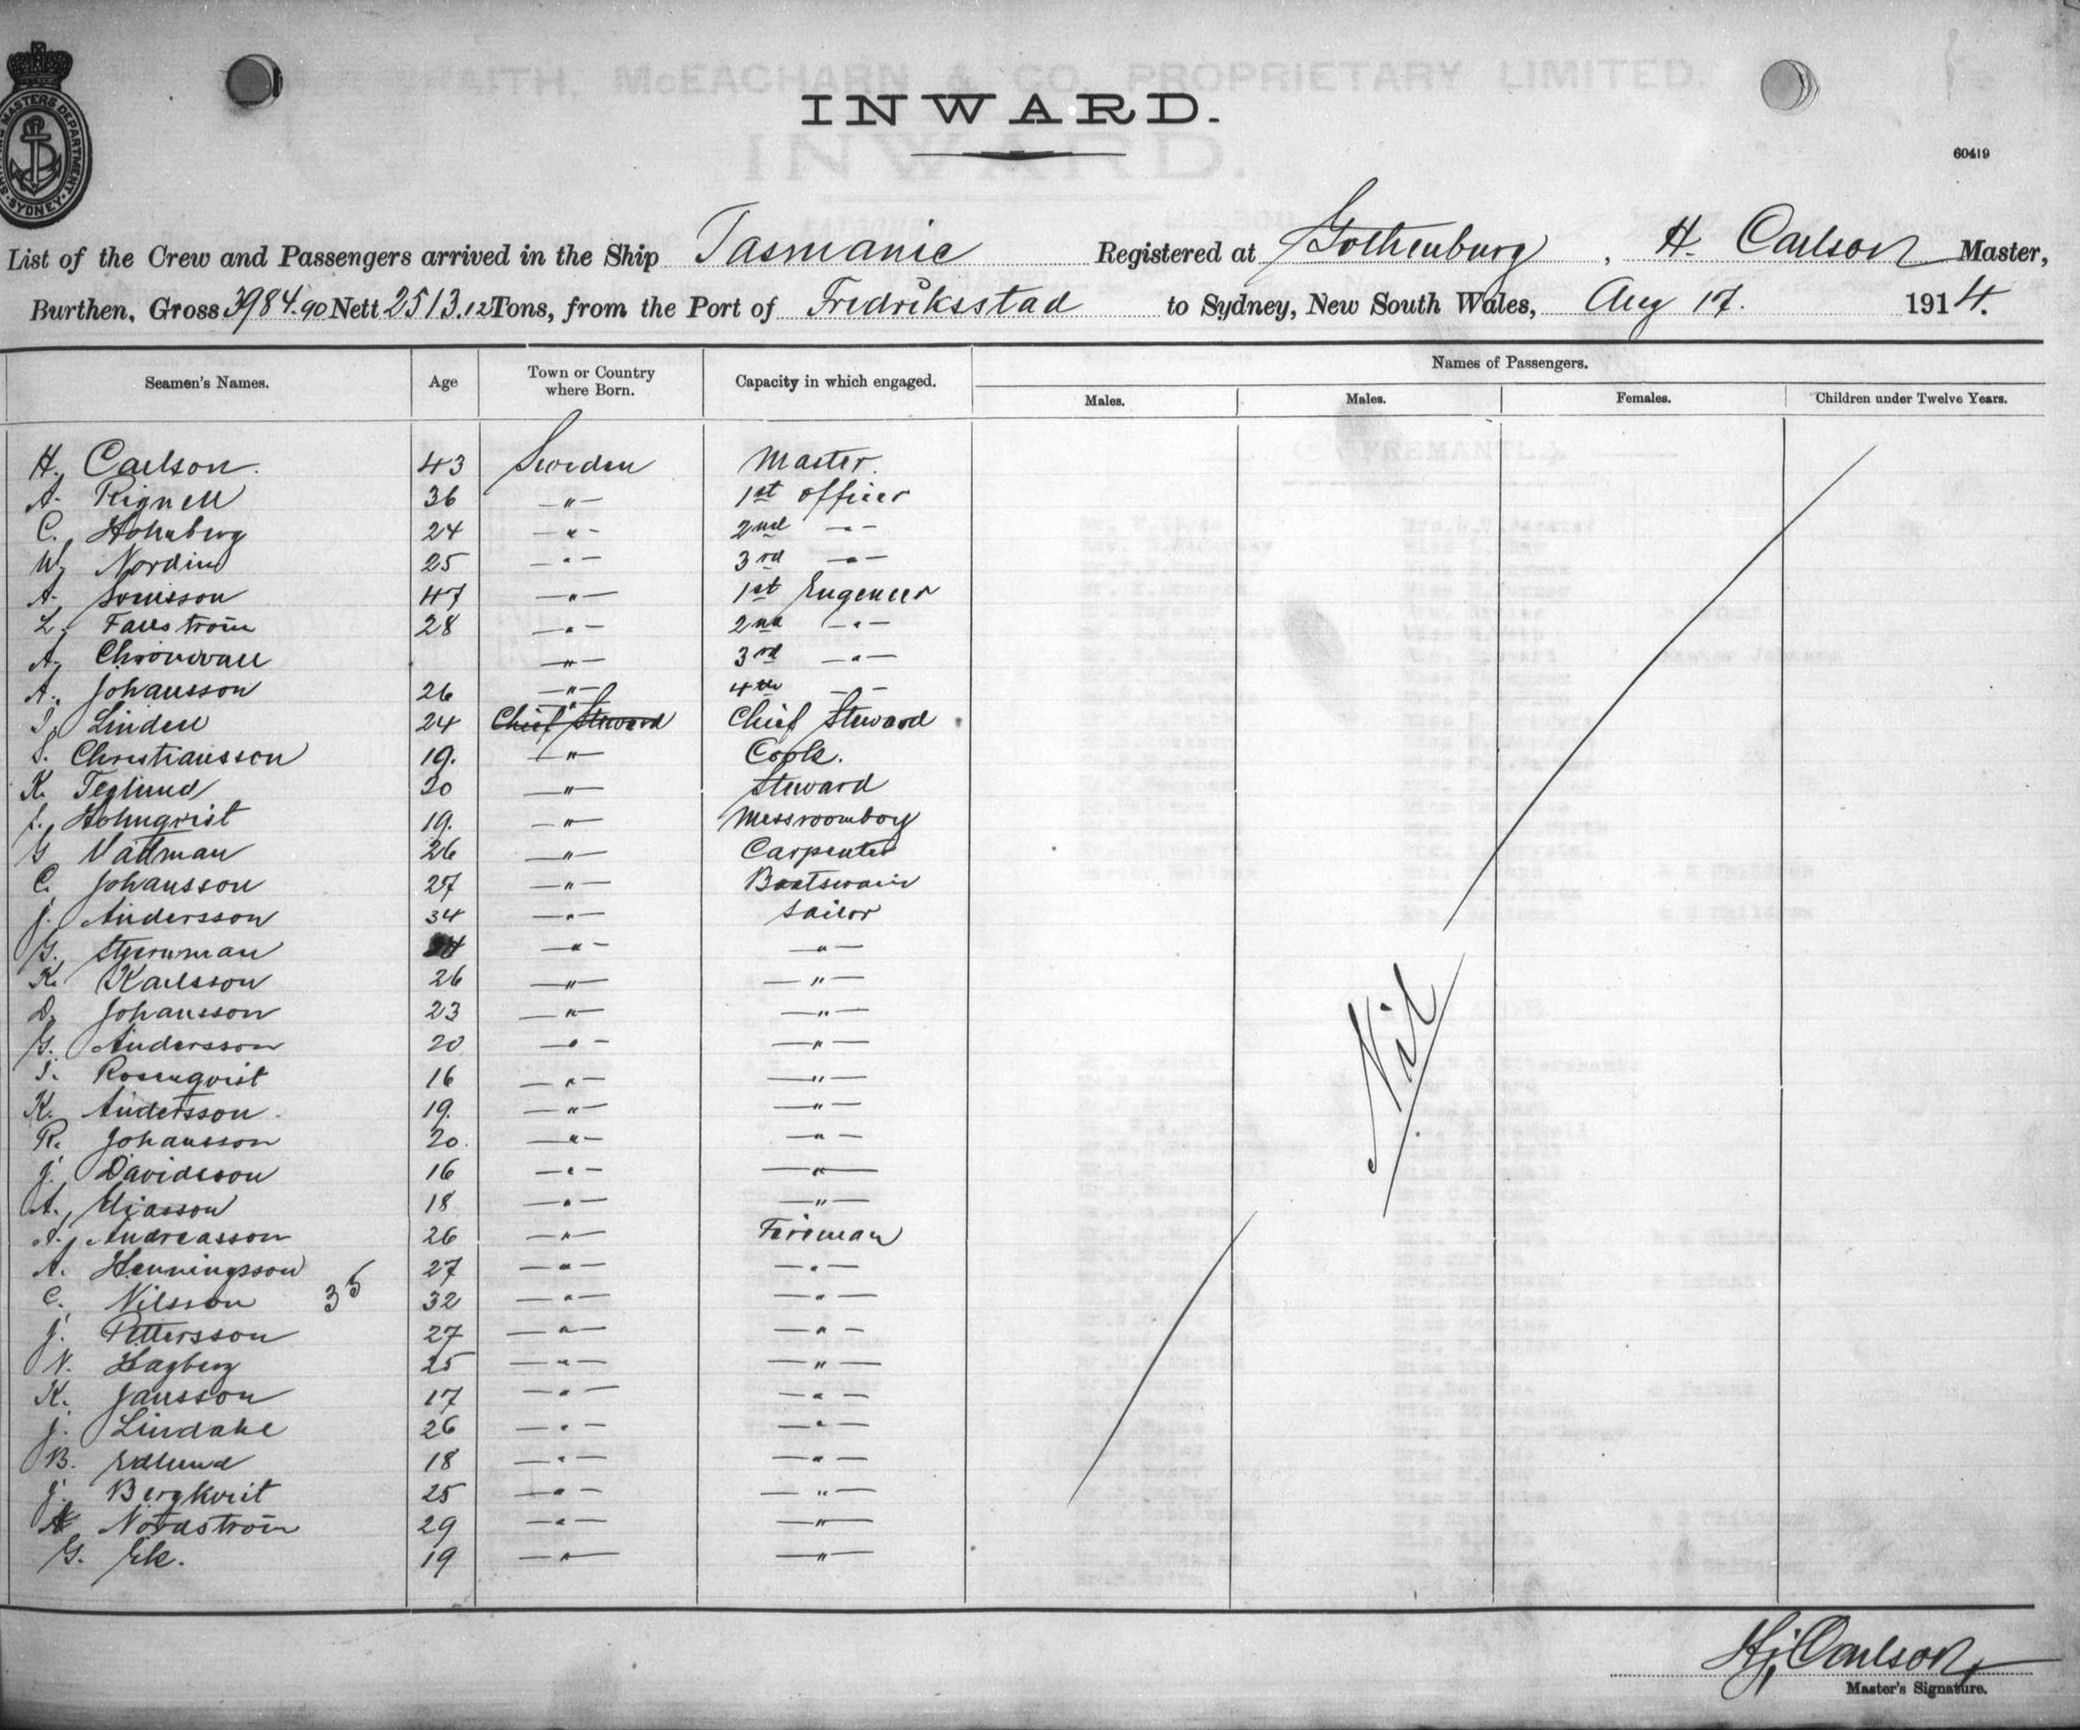 SHIPPING MASTERS DEPARTMENT · SYDNEY ·
INWARD.
60419
List of the Crew and Passengers arrived in the Ship Tasmanic Registered at Gothenburg, H. Carlson Master,
Burthen, Gross 3984.90 Nett 2513.12 Tons, from the Port of Fredriksstad to Sydney, New South Wales, Aug 17. 1914.
Seamen's Names. Age Town or Country where Born. Capacity in which engaged. Names of Passengers.
Males. Males. Females. Children under Twelve Years.
H. Carlson. 43 Sweden Master.
A. Rignell 36 —"— 1st officer
C. Holmberg 24 —"— 2nd —"—
W. Nordin 25 —"— 3rd —"—
A. Svensson 47 —"— 1st Engeneer
L. Fallström 28 —"— 2nd —"—
A. —"— 3rd —"—
A. Johansson 26 —"— 4th — —
Lindell 24 Chief Steward " Chief Steward
Christiansson 19. —"— Cook.
K. Teglund 20 —"— Steward
Holmqvist 19. —"— Messroomboy
G Wadman 26 —"— Carpenter
C. Johansson 27 —"— Boatswain
J. Andersson 34 —"— Sailor
G. Stjernman —"— —"—
K. Karlsson 26 —"— —"—
D. Johansson 23 —"— —"—
G. Andersson 20 —"— —"—
Rosenqvist 16 —"— —"—
K. Andersson 19. —"— —"—
R. Johansson 20. —"— —"—
J. Davidsson 16 —"— —"—
A. 18 —"— —"—
Andreasson 26 —"— Fireman
A. Henningsson 27 —"— —"—
C. Nilsson 35 32 —"— —"—
J. Pettersson 27 —"— —"—
N. Hagberg 25 —"— —"—
K. Jansson 17 —"— —"—
J. Lindahl 26 —"— —"—
B. Edlund 18 —"— —"—
J. Bergkvist 25 —"— —"—
Nordström 29 —"— —"—
G. Ek. 19 —"— —"—
Nil
Hj. Carlson
Master's Signature.